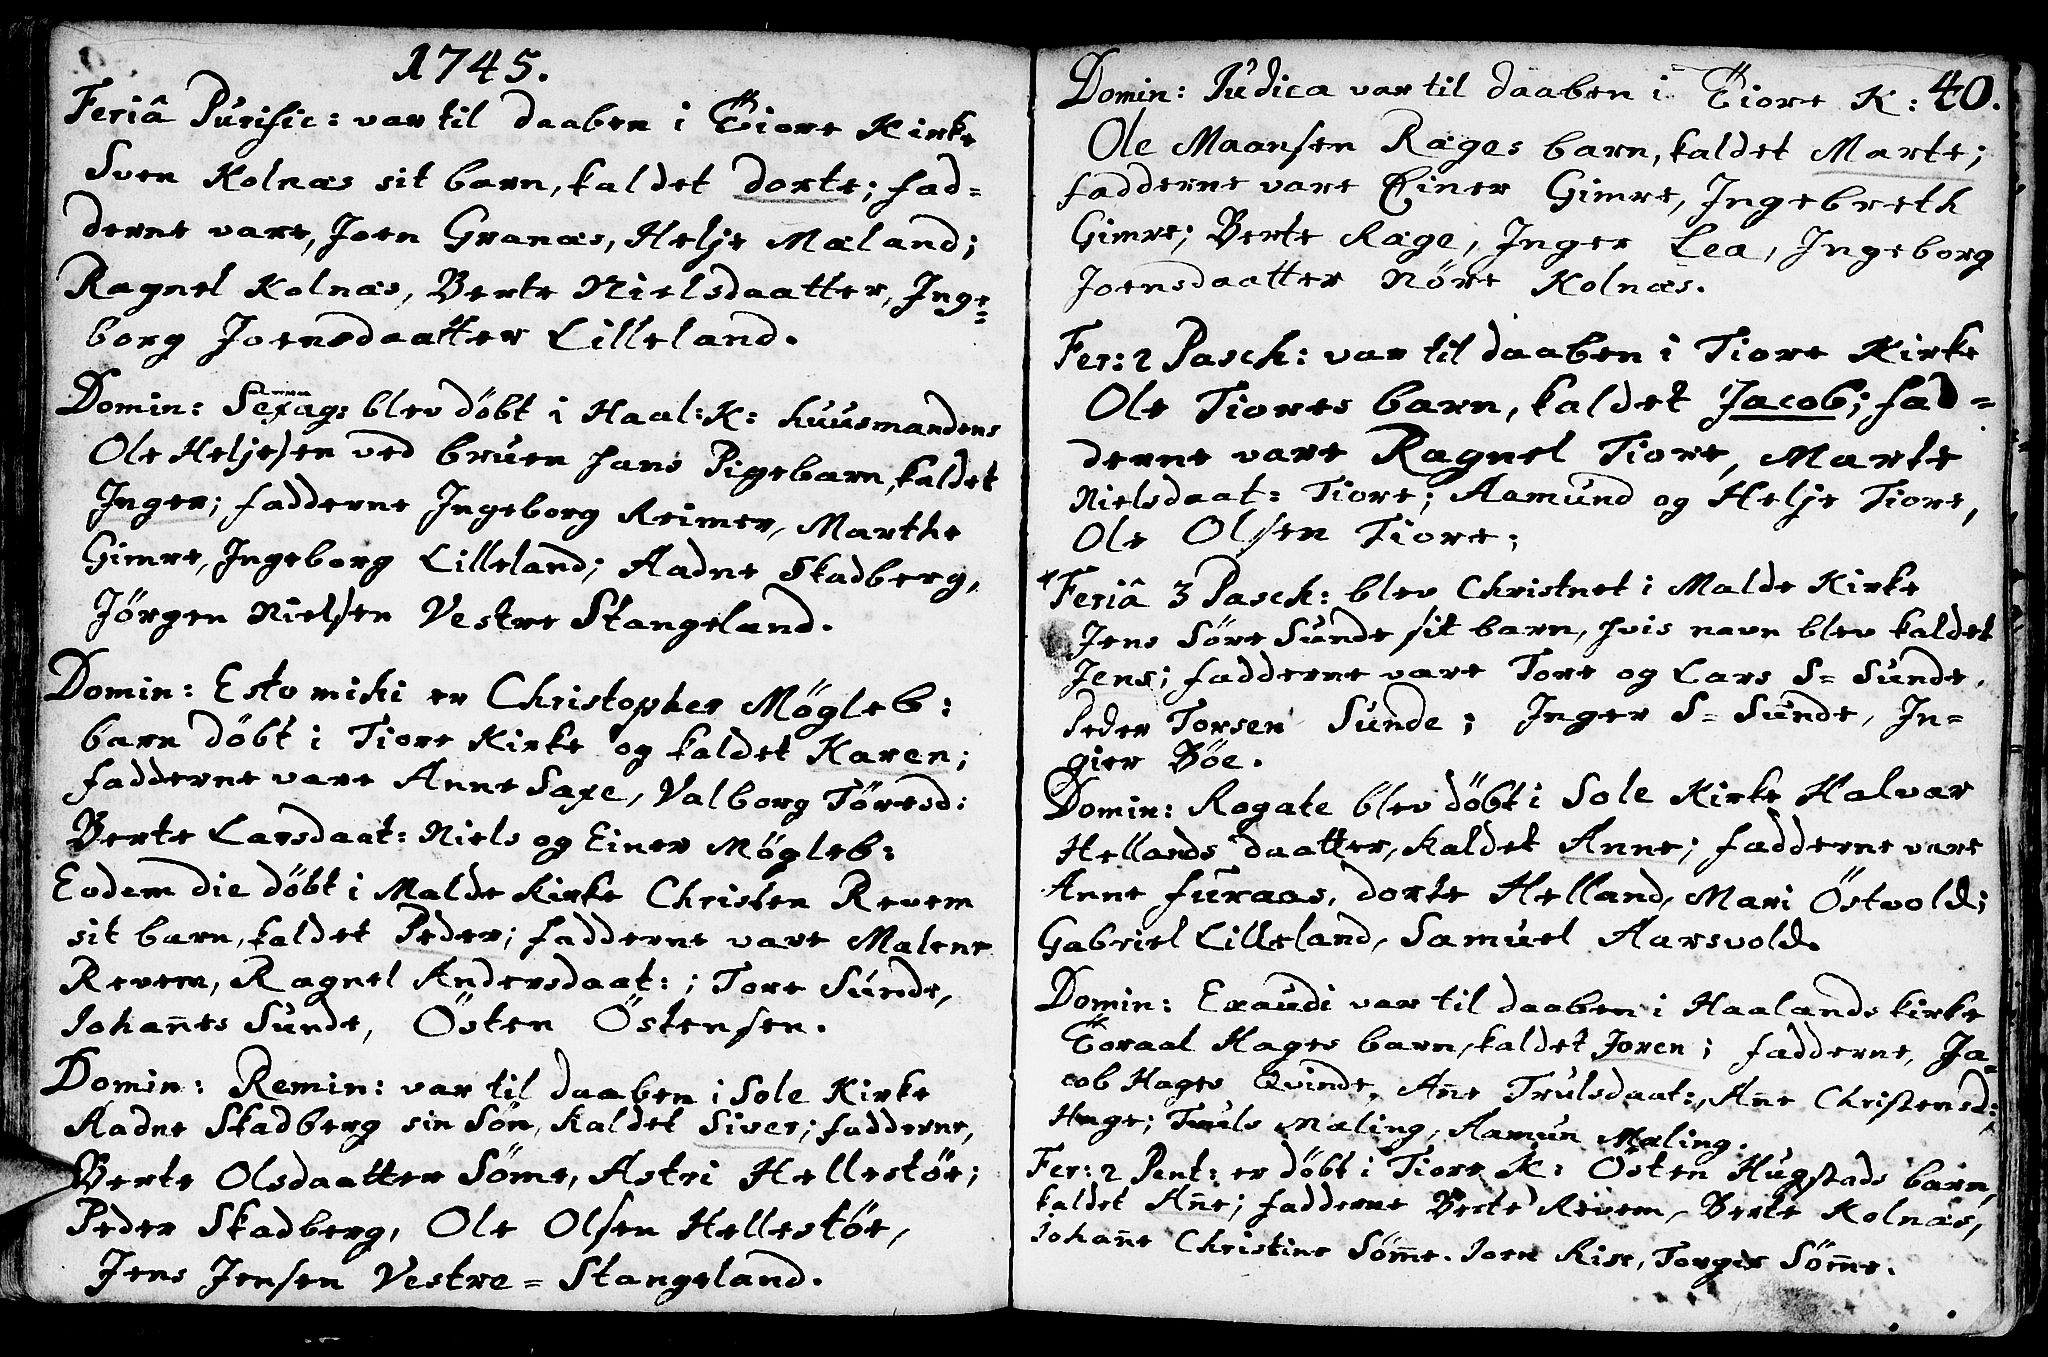 1745.
Feriâ Purific: var til daaben i Tiore Kirke
Sven Kolnæs sit barn, kaldet dorte; fad=
derne vare, Joen Granæs, Helje Mæland;
Ragnel Kolnæs, Berte Nielsdaatter, Inge=
borg Joensdaatter Lilleland.
Domin: Sexag: blev döbt i Haal: K: huusmandens
Ole Heljesen ved bruen hans Pigebarn, kaldet
Inger; fadderne Ingeborg Reimer, Marthe
Gimre, Ingeborg Lilleland; Aadne Skadberg,
Jörgen Nielsen Vestre Stangeland.
Domin: Esto mihi er Christopher Mögleb:
barn döbt i Tiore Kirke og kaldet Karen;
fadderne vare Anne Saxe, Valborg Töresd:
Berte Larsdaat: Niels og Einer Mögleb:
Eodem die döbt i Malde Kirke Christen Revem
sit barn, kaldet Peder; fadderne vare Malene
Revem, Ragnel Andersdaat:; Tore Sunde,
Johan̄es Sunde, Östen Östensen.
Domin: Remin: var til daaben i Sole Kirke
Aadne Skadberg sin Sön, kaldet Siver; fadderne,
Berte Olsdaatter Söme, Astri Hellestöe;
Peder Skadberg, Ole Olsen Hellestöe,
Jens Jensen Vestre=Stangeland.
40.
Domin: Judica var til daaben i Tiore K:
Ole Maansen Ræges barn, kaldet Marte;
fadderne vare Einer Gimre, Ingebreth
Gimre; Berte Ræge, Inger Lea, Ingeborg
Joensdaatter Nöre Kolnæs.
Fer: 2 Pasch: var til daaben i Tiore Kirke
Ole Tiores barn, kaldet Jacob; fad=
derne vare Ragnel Tiore, Marte
Nielsdaat: Tiore; Aamund og Helje Tiore,
Ole Olsen Tiore;
Feriâ 3 Pasch: blev Christnet i Malde Kirke
Jens Söre Sunde sit barn, hvis navn blev kaldet
Jens; fadderne vare Tore og Lars S= Sunde,
Peder Torsen Sunde; Inger S= Sunde, In=
gier Böe.
Domin: Rogate blev döbt i Sole Kirke Halvar
Hellands daatter, kaldet Anne; fadderne vare
Anne Furaas, dorte Helland, Mari Östvold;
Gabriel Lilleland, Samuel Aarsvold.
Domin: Exaudi var til daaben i Haalands kirke
Toraal Hages barn, kaldet Joren; fadderne, Ja=
cob Hages Qvinde, An̄e Trulsdaat:, An̄e Christensd:
Hage; Truls Mæling, Aamun Mæling.
Fer: 2 Pent: er döbt i Tiore K: Östen Hugstads barn,
kaldet An̄e; fadderne Berte Revem, Berte Kolnæs,
Johan̄e Christine Söm̄e. Joen Rise, Torger Söm̄e.